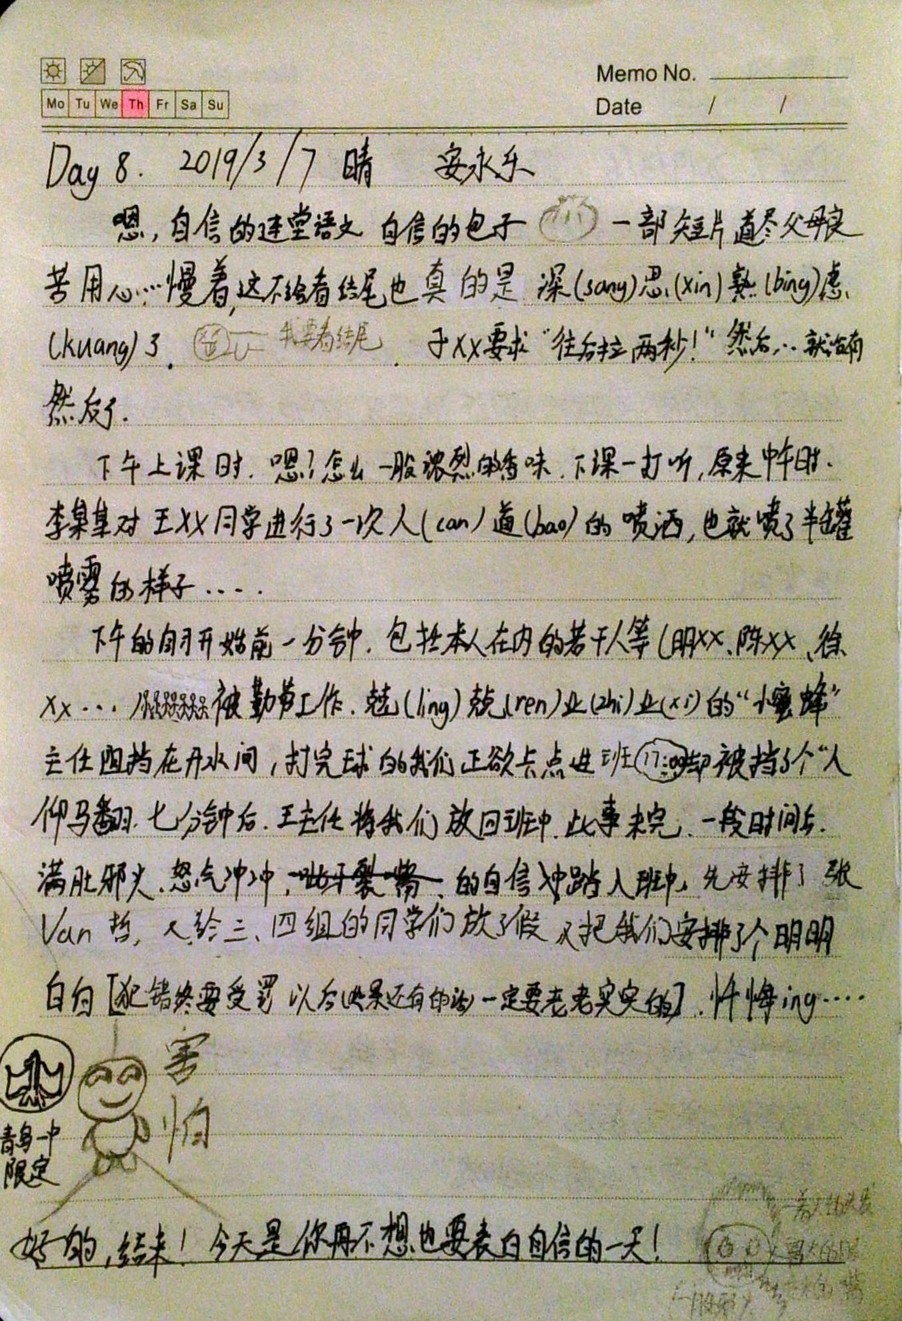 Memo No.
Mo Tu We Th Fr Sa Su
Date / /
Day 8. 2019/3/7 晴 安永乐
嗯,自信的连堂语文 自信的包子 一部短片道尽父母良
苦用心…慢着,这不给看结尾也真的是 深(sang)思(xin)熟(bing)虑
(kuang)了. 我要看结尾 . 于XX要求“往后拉两秒!”然后…就没有
然后了.
下午上课时.嗯?怎么一股浓烈的香味.下课一打听,原来中午时.
李某某对王XX同学进行了一次人(can)道(bao)的喷洒,也就喷了半罐
喷雾的样子....
下午的自习开始前一分钟.包括本人在内的若干人等(明XX、陈XX、徐
XX... 被勤劳工作.兢(ling)兢(ren)业(zhi)业(xi)的“小蜜蜂”
主任阻挡在开水间,打完球的我们正欲卡点进班(17:00)却被挡了个“人
仰马翻.七分钟后.王主任将我们放回班中.此事未完.一段时间后.
满肚邪火.怒气冲冲, 的自信冲踏入班中.先安排了张
Van哲,又给三、四组的同学们放了假 又把我们安排了个明明
白白[犯错终要受罚 以后(如果还有的话)一定要老老实实的].忏悔ing....
害
怕
青岛一中
限定
好的,结束!今天是你再不想也要表白自信的一天!